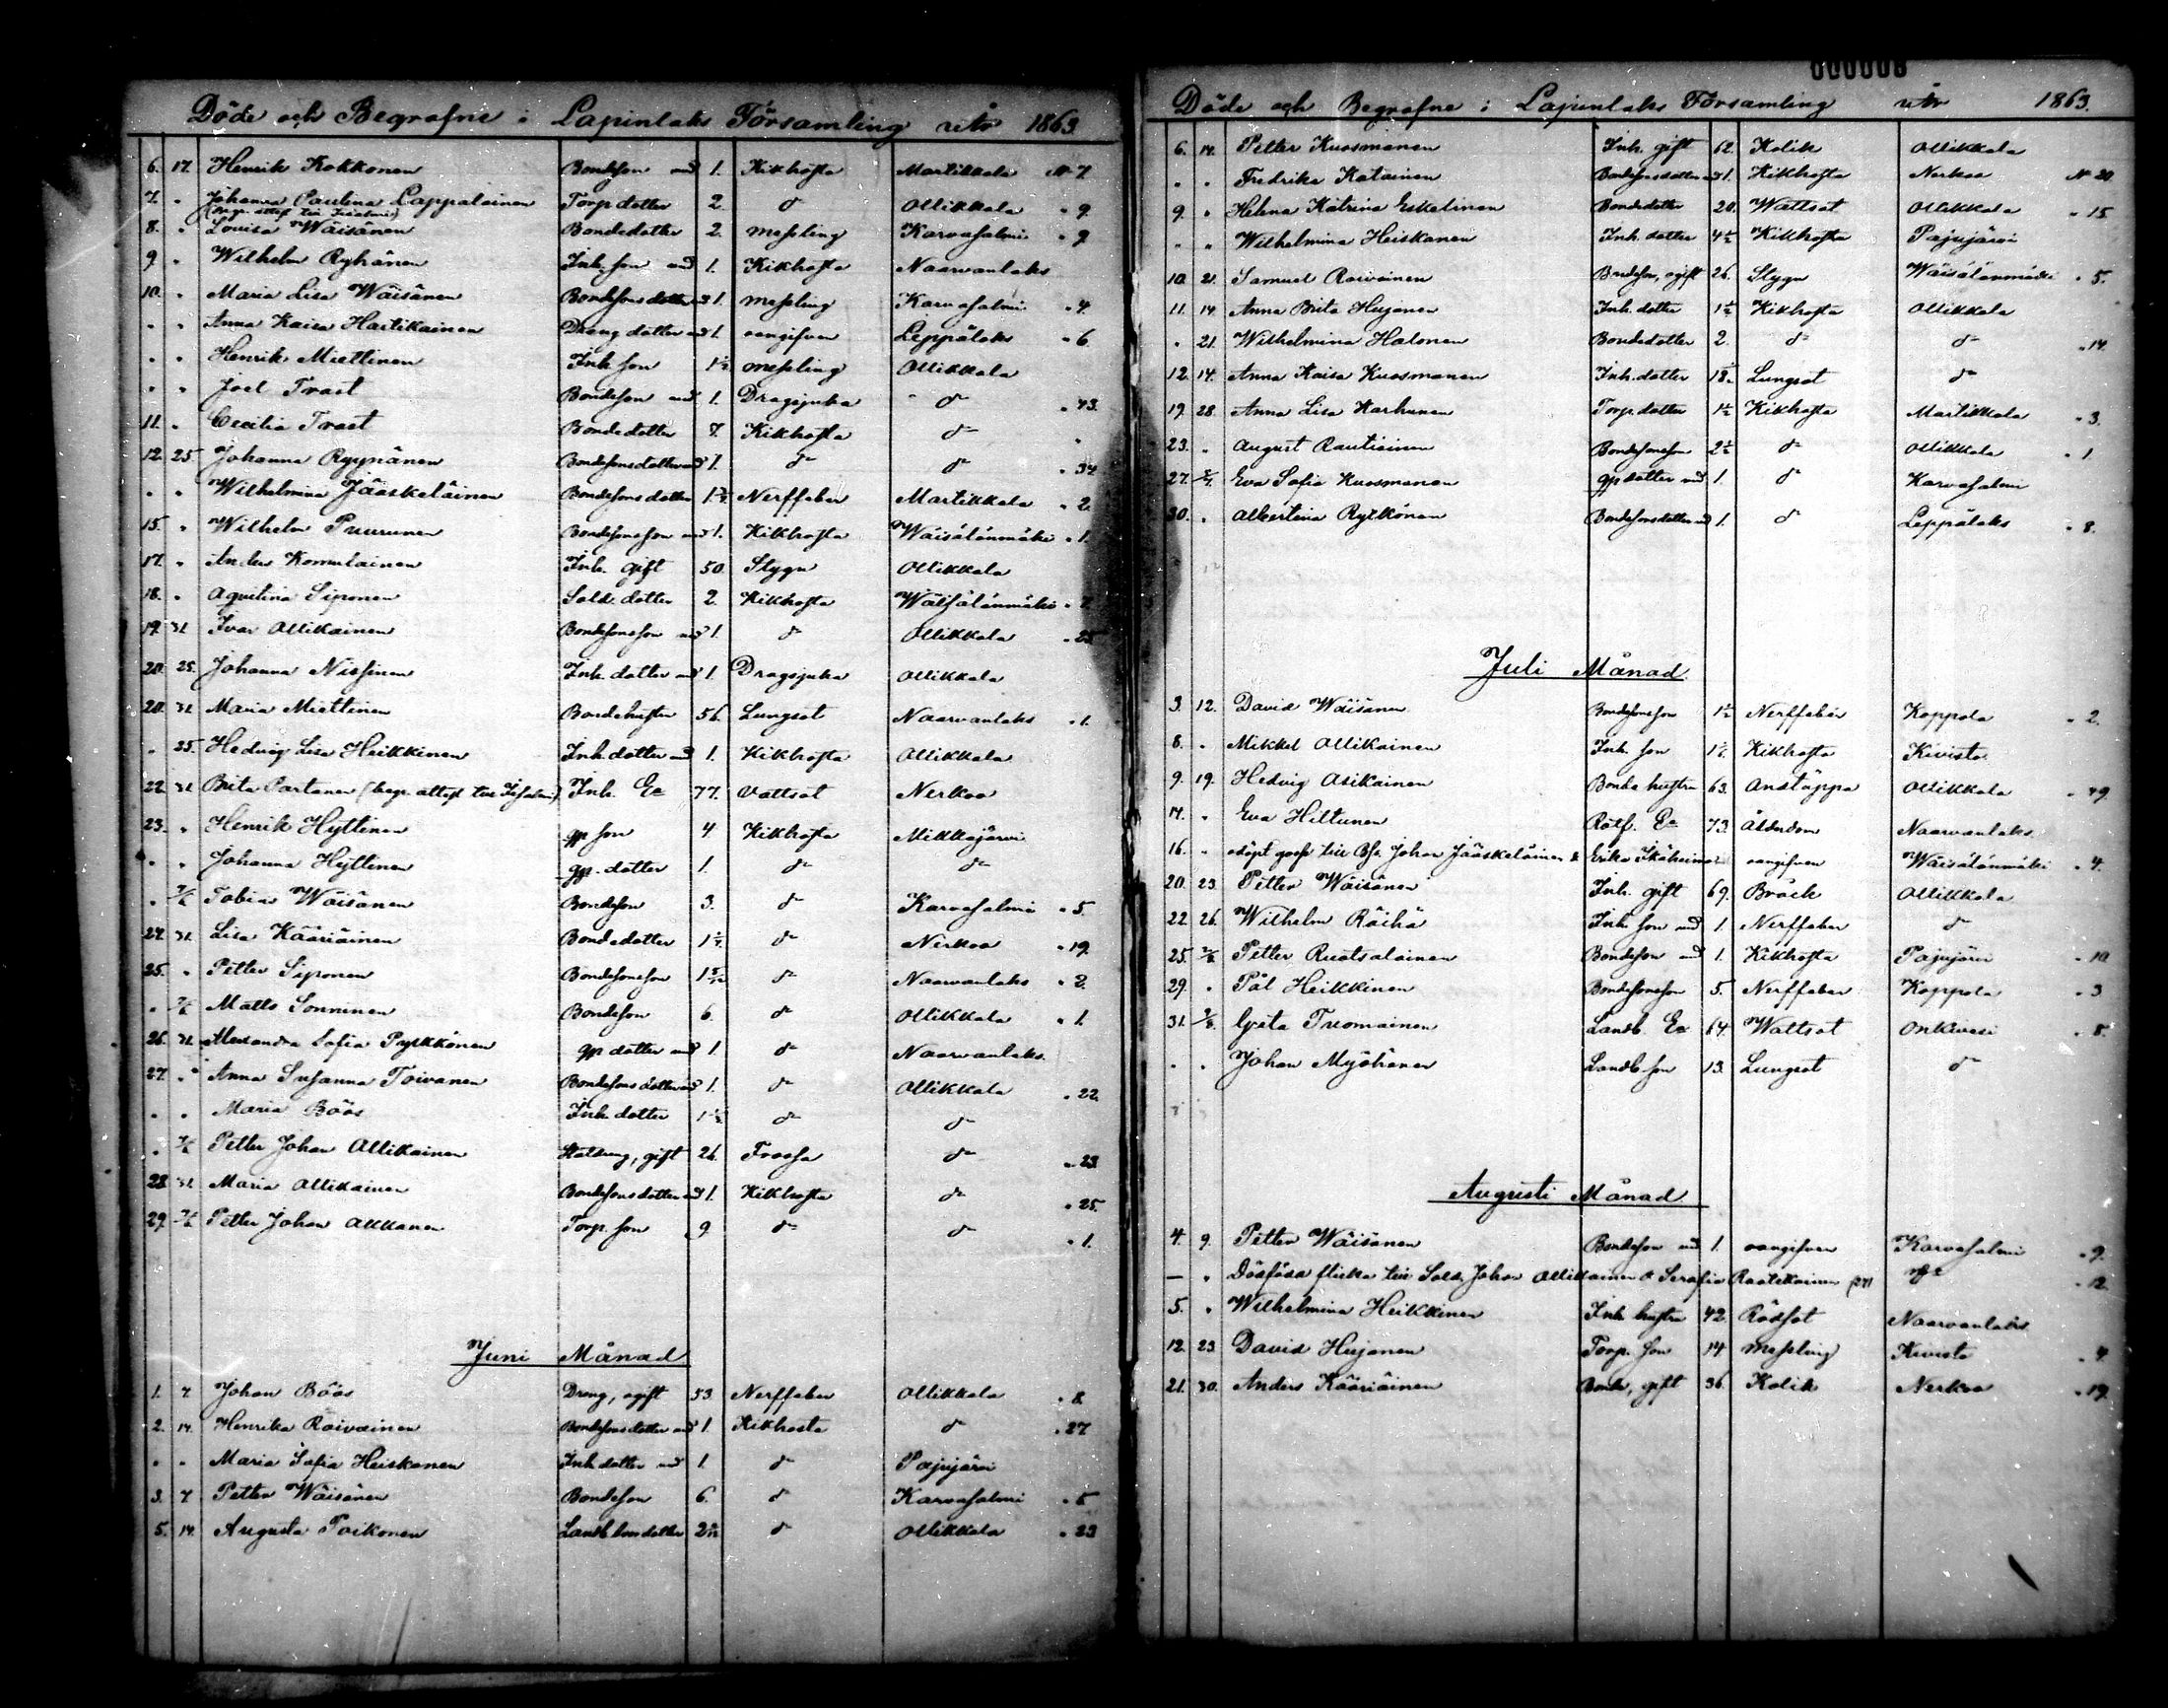 Döde och Begrafne i Lapinlaks Församling år 1863.
6. 17. Henrik Kokkonen Bondeson und 1. Kikhosta Martikkala N 7
7. " Johanna Paulina Lappalainen Torp. dotter 2. d:o Ollikkala " 9.
(begr. attest till Idensalmi)
8. " Lovisa Wäisänen Bondedotter 2. messling Karvasalmi " 9.
9. " Wilhelm Ryhänen Inh. son und 1. Kikhosta Naarvanlaks
10. " Maria Lisa Wäisänen Bondesons dotter und 1. messling Karvasalmi " 4.
" " Anna Kaisa Hartikainen Dreng dotter und 1. oangifven Leppälaks " 6.
" " Henrik Miettinen Inh son messling Ollikkala
" " Joel Trast Bondeson und 1. Dragsjuka d:o " 43.
11. " Cecilia Trast Bondedotter 7. Kikhosta d:o "
12. 25. Johanna Ryynänen Bondesonsdotter und 1. d:o d:o " 34
" " Wilhelmina Jääskeläinen Bondesons dotter Nerffeber Martikkala " 2.
15. " Wilhelm Puurunen Bondesonson und 1. Kikhosta Wäisälänmäki " 1.
17. " Anders Komulainen Inh. gift 50. Stygn Ollikkala
18. " Aqvilina Siponen Sold. dotter 2. Kikhosta Wäisälänmäki "
19. 31. Ivar Ollikainen Bondesonson und 1. d:o Ollikkala " 25.
20. 25. Johanna Nissinen Inh. dotter und 1. Dragsjuka Ollikkala
20. 31. Maria Miettinen Bondehustru 56. Lungsot Naarvanlaks " 1.
" 25. Hedvig Lisa Heikkinen Inh. dotter und 1. Kikhosta Ollikkala
22. 31. Brita Partanen (begr. attest till Idensalmi) Inh. E:a 77. Vattsot Nerkoo
23. " Henrik Hyttinen gp son 4 Kikhosta Mikkajärvi
" " Johanna Hyttinen gp. dotter 1. d:o d:o
" 7/6 Tobias Wäisänen Bondeson 3. d:o Karvasalmi " 5.
24. 31. Lisa Kääriäinen Bondedotter 1½. d:o Nerkoo " 19.
25. " Petter Siponen Bondesonson d:o Naarvanlaks " 2.
" 7/6 Matts Sonninen Bondeson 6. d:o Ollikkala " 1.
26. 31. Alexandra Sofia Pyykkönen gp dotter und 1. d:o Naarvanlaks.
27. " Anna Susanna Toivanen Bondesons dotter und 1. d:o Ollikkala " 22.
" " Maria Böös Inh. dotter 1½ d:o d:o
" 7/6 Petter Johan Ollikainen gift 26. Frossa d:o " 23
28. 31. Maria Ollikainen Bondesons dotter und 1. Kikhosta d:o " 25.
29. 7/6 Petter Johan Akkanen Torp. son 9. d:o d:o " 1.
Juni Månad
1. 7. Johan Böös Dreng, ogift 53. Nerffeber Ollikkala " 8.
2. 14. Henrika Roivainen Bondesonsdotter und 1. Kikhosta d:o " 27
" " Maria Sofia Heiskanen Inh dotter und 1. d:o Pajujärvi
3. 7. Petter Wäisänen Bondeson 6. d:o Karvasalmi " 5
5. 14. Augusta Poikonen Landb. sondotter d:o Ollikkala " 23
000008
Döde och Begrafne i Lapinlaks Församling år 1863.
6. 14. Petter Kuosmanen Inh. gift 62. Kolik Ollikkala
" " Fredrika Katainen Bondesonsdotter und 1. Kikhosta Nerkoo N 20
9. " Helena Katrina Eskelinen Bondedotter 20. Wattsot Ollikkala " 15.
" " Wilhelmina Heiskanen Inh. dotter 4½ Kikhosta Pajujärvi
10. 21. Samuel Roivainen Bondeson, ogift 26. Stygn Wäisälänmäki " 5.
11. 14. Anna Brita Hujanen Inh. dotter 1½ Kikhosta Ollikkala
" 21. Wilhelmina Halonen Bondedotter 2. d:o d:o " 14.
12. 14. Anna Kaisa Kuosmanen Inh. dotter 18. Lungsot d:o
19. 28. Anna Lisa Karhunen Torp. dotter 1½ Kikhosta Martikkala " 3.
23. " August Rautiainen Bondesonson 2½ d:o Ollikkala " 1
27. 5/7. Eva Sofia Kuosmanen gp dotter und 1. d:o Karvasalmi
30. " Albertina Rytkönen Bondesonsdotter und 1. d:o Leppälaks " 8.
Juli Månad
3. 12. David Wäisänen Bondesonson 1½ Nerffeber Koppola " 2.
8. " Mikkel Ollikainen Inh. son Kikhosta Kivistö
9. 19. Hedvig Asikainen Bonde hustru 63. Andtäppa Ollikkala " 49.
14. " Eva Hiltunen Rotf. E:a 73. Ålderdom Naarvanlaks
16. " odöpt gosse till Bs. Johan Jääskeläinen & Erika Ikäheimo oangifven Wäisälänmäki " 4.
20. 23. Petter Wäisänen Inh. gift 69. Bråck Ollikkala
22. 26. Wilhelm Räihä Inh. son und 1. Nerffeber d:o
25. 2/8. Petter Ruotsalainen Bondeson und 1. Kikhosta Pajujärvi " 10
29. " Pål Heikkinen Bondesonson 5. Nerffeber Koppola " 3
31. 2/8. Greta Tuomainen Landb. E:a 64. Wattsot Onkivesi " 5.
" " Johan Myöhänen Landb. son 13. Lungsot d:o
Augusti Månad
4. 9. Petter Wäisänen Bondeson und 1. oangifven Karvasalmi " 9.
— " Dödfödd flicka till Sold. Johan Ollikainen & Serafia Raatikainen " 12.
5. " Wilhelmina Heikkinen Inh. hustru 42. Rödsot Naarvanlaks
12. 23. David Hujanen Torp. son 14 Messling Kivistö " 4.
21. 30. Anders Kääriäinen Bonde, gift 36. Kolik Nerkoo " 19.